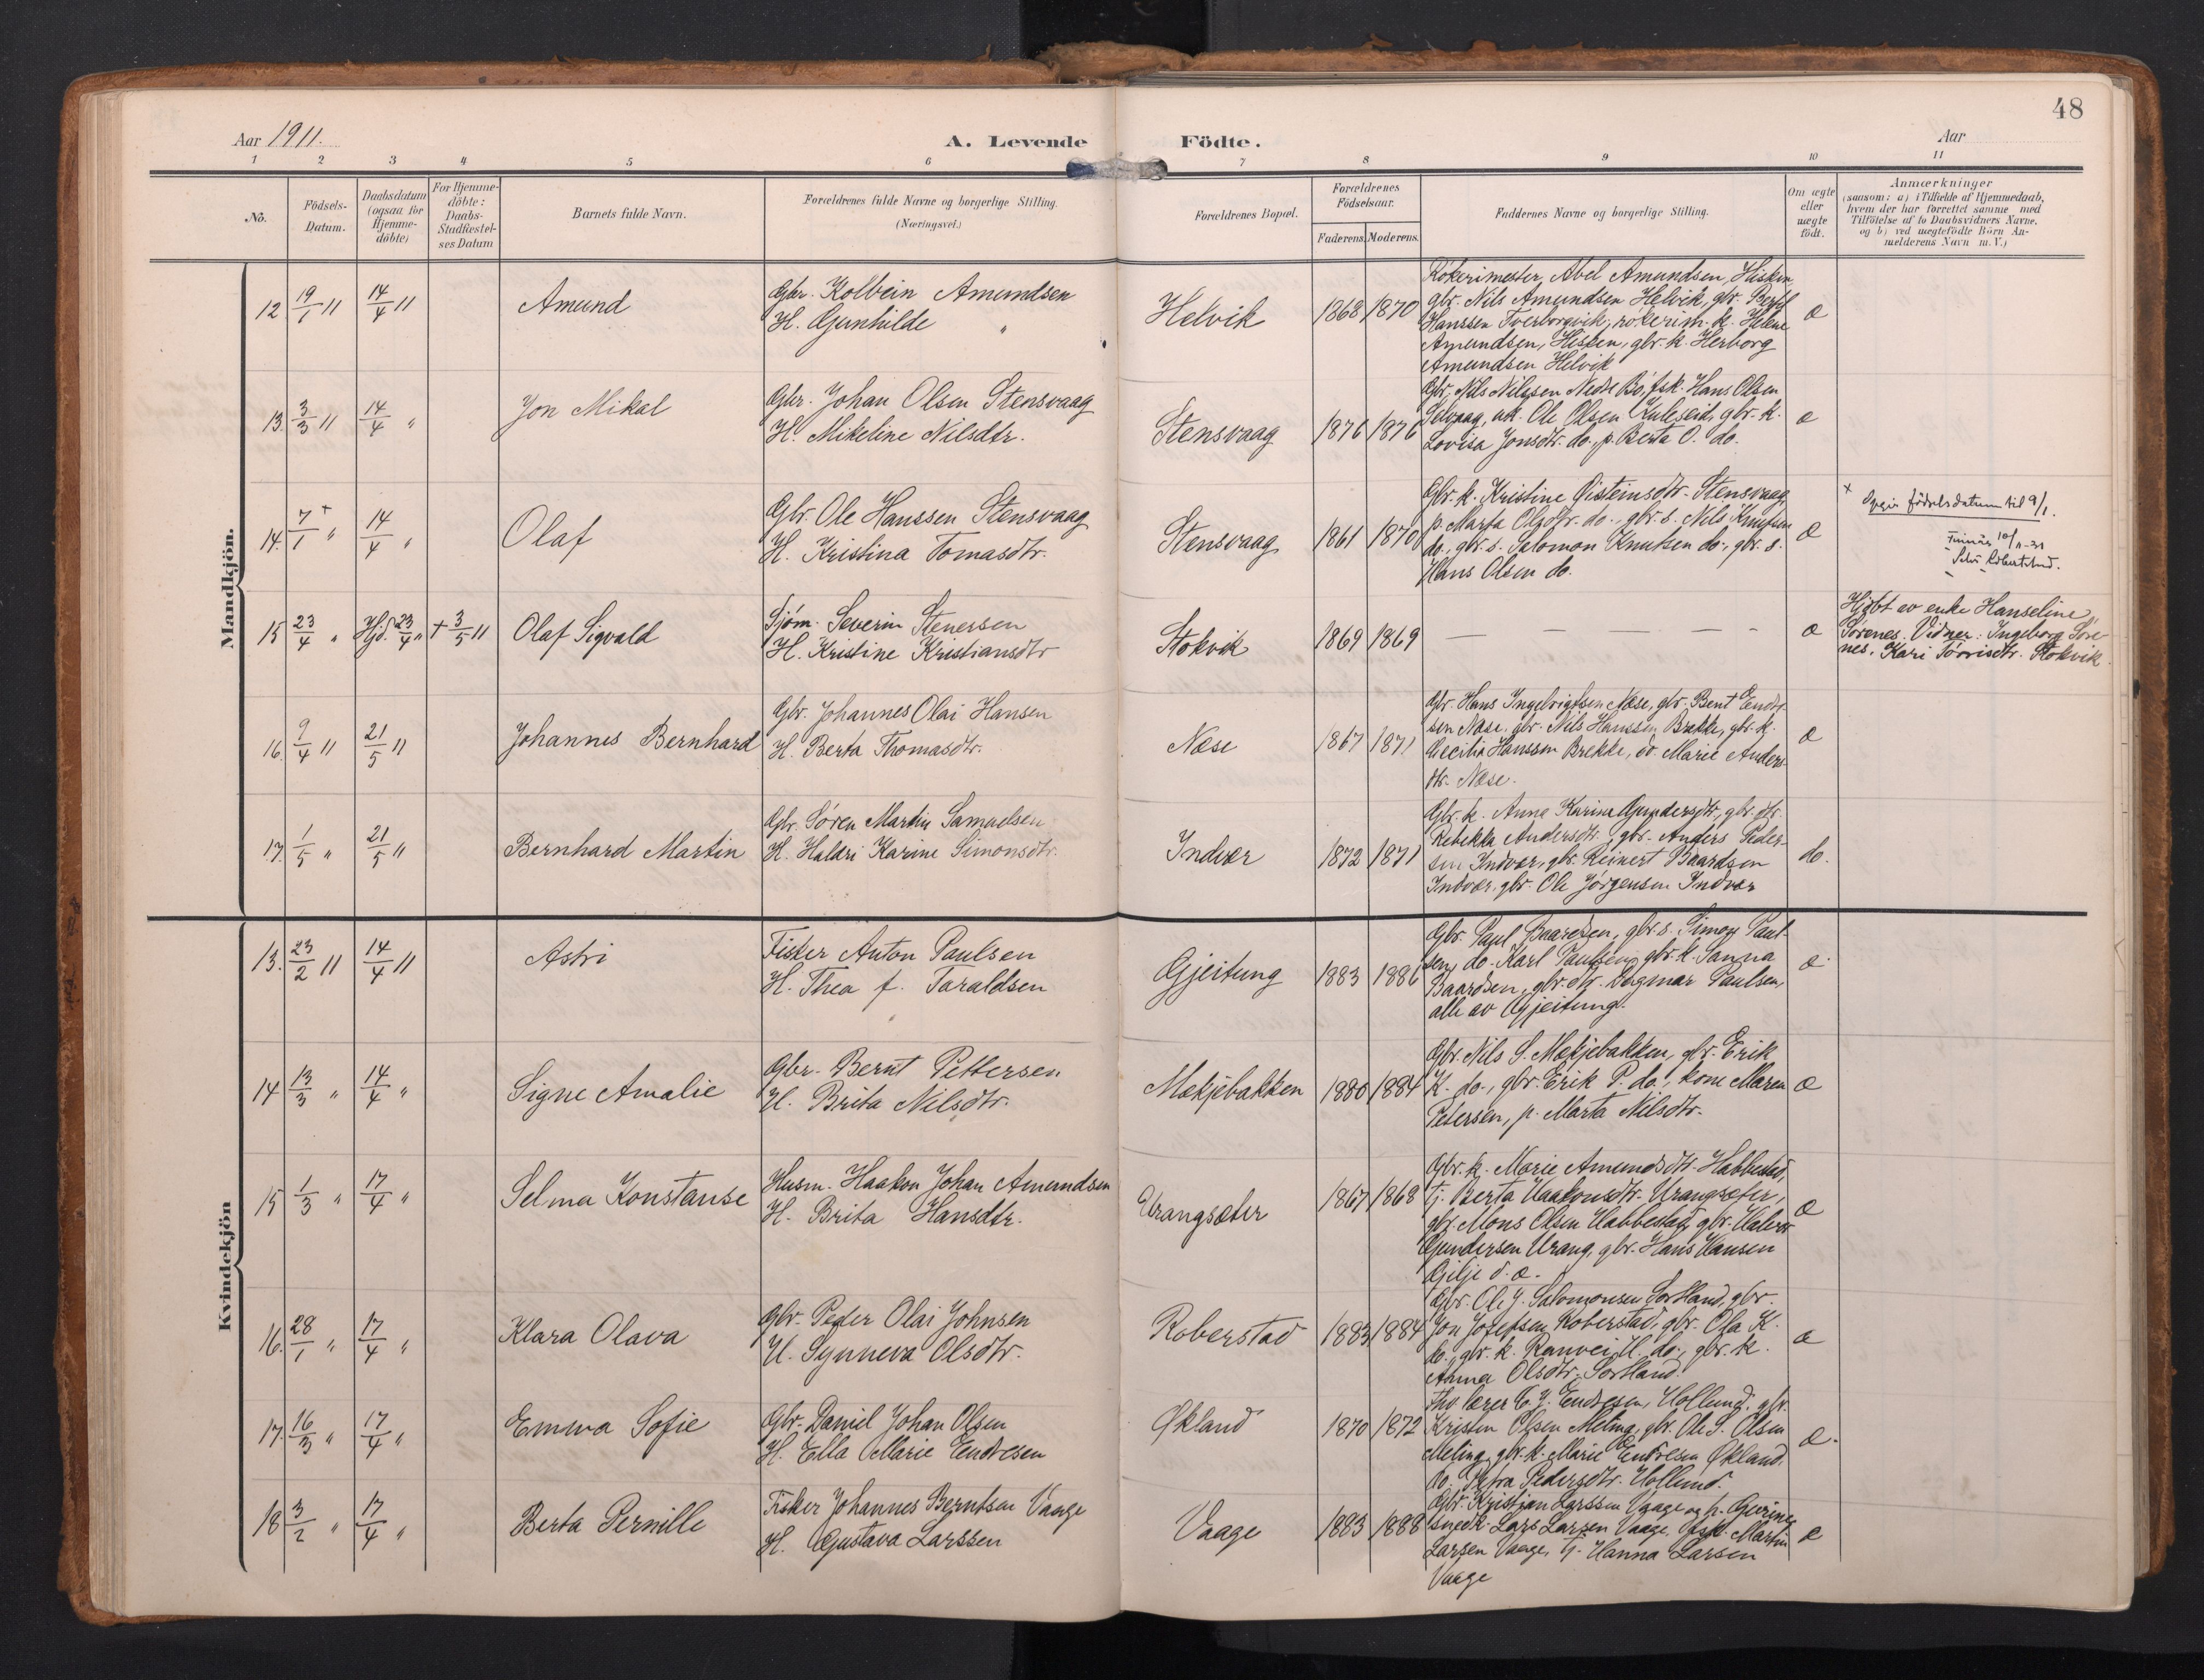 48
Aar 1911.
A. Levende Födte.
Aar
1 2 3 4 5 6 7 8 9 10 11
No.
Födsels-Datum.
Daabsdatum (ogsaa for Hjemme-döbte)
For Hjemme-döbte: Daabs-Stadfæstel-ses Datum
Barnets fulde Navn.
Forældrenes fulde Navne og borgerlige Stilling. (Næringsvei.)
Forældrenes Bopæl.
Forældrenes Födselsaar.
Faderens. Moderens.
Faddernes Navne og borgerlige Stilling.
Om ægte eller uægte födt.
Anmærkninger
(saasom: a) i Tilfælde af Hjemmedaab,
hvem der har forrettet samme med
Tilföielse af to Daabsvidners Navne,
og b) ved uægtefödte Börn An-
melderens Navn m. V.)
Mandkjön.
12 19/1 11 14/4 11 Amund
Gbr. Kolbein Amundsen
H. Gunhilde "
Helvik 1868 1870
Røkerimester Abel Amundsen, Hisken,
gbr. Nils Amundsen Helvik, gbr. Bertel
Hanssen Tverborgvik, røkerim. k. Helene
Amundsen, Hisken, gbr. k. Herborg
Amundsen Helvik
æ
13. 3/3 11 14/4 " Jon Mikal
Gbr. Johan Olsen Stensvaag
H. Mikeline Nilsdtr.
Stensvaag 1876 1876
Gbr. Nils Nilssen Nedre Bø, fsk. Hans Olsen
Selvaag, uk. Ole Olsen Kuleseid, gbr. k.
Lovisa Jonsdtr. do., p. Berta O. do.
æ
14. 7/1 + " 14/4 " Olaf
Gbr. Ole Hanssen Stensvaag
H. Kristina Tomasdtr.
Stensvaag 1861 1870
Gbr. k. Kristine Øisteinsdtr. Stensvaag
p. Marta Olsdtr. do., gbr. s. Nils Knutsen
do., gbr. s. Salomon Knutsen do., gbr. s.
Hans Olsen do.
æ
+ Opgir födselsdatum til 9/1.
15 23/4 " Hjd. 23/4 " + 3/5 11 Olaf Sigvald
Sjöm. Severin Stenersen
H. Kristine Kristiansdtr
Stokvik 1869 1869
— — — — -
æ
Hjdbt av enke Hanseline
Sørenes. Vidner: Ingeborg Søre-
nes. Kari Torrisdtr. Stokvik.
16. 9/4 11 21/5 11 Johannes Bernhard
Gbr. Johannes Olai Hansen
H. Berta Thomasdtr.
Næse 1867 1871
Gbr. Hans Ingebrigtsen Næse, gbr. Bent Endre-
sen Næse, gbr. Nils Hanssen Brekke, gbr. k.
Cecilia Hanssen Brekke, do. Marie Anders-
dtr. Næse.
æ
17. 1/5 " 21/5 11 Bernhard Martin
Gbr. Søren Martin Samuelsen
H. Haldri Karine Simonsdtr.
Indvær 1872 1871
Gbr. k. Anna Karina Gundersdtr, gbr. dtr.
Rebekka Andersdtr., gbr. Anders Peder-
sen Indvær, gbr. Reinert Baardsen
Indvær, gbr. Ole Jørgensen Indvær
do.
Kvindekjön
13. 23/2 11 14/4 11 Astri
Fisker Anton Paulsen
H. Thea f. Taraldsen
Gjeitung 1883 1886
Gbr. Paul Baardsen, gbr. s. Simon Paul-
sen, do. Karl Paulsen, gbr. k. Sanna
Baardsen, gbr. dtr. Dagmar Paulsen,
alle av Gjeitung.
æ
14 13/3 " 14/4 " Signe Amalie
Gbr. Bernt Pettersen
H. Brita Nilsdtr.
Mækjebakken 1880 1884
Gbr. Nils S. Mækjebakken, gbr. Erik
K. do., gbr. Erik P. do., kone Maren
Petersen, p. Marta Nilsdtr.
æ
15 1/3 " 17/4 " Selma Konstanse
Husm. Haakon Johan Amundsen
H. Brita Hansdtr.
Urangsæter 1867 1868
Gbr. k. Marie Amundsdtr. Habbestad,
tj. Berta Haakonsdtr. Urangsæter,
gbr. Mons Olsen Habbestad, gbr. Halvor
Gundersen Urang, gbr. Hans Hansen
Gilje d. æ.
æ
16. 28/1 " 17/4 " Klara Olava
Gbr. Peder Olai Johnsen
H. Synneva Olsdtr.
Roberstad 1883 1884
Gbr. Ole J. Salomonsen Sortland, gbr.
Jon Josefsen Roberstad, gbr. Ola K.
do., gbr. k. Ranvei H. do., gbr. k.
Anna Olsdtr. Sortland.
æ
17. 16/3 " 17/4 " Emma Sofie
Gbr. Daniel Johan Olsen
H. Ella Marie Endresen
Økland 1870 1872
lærer E. J. Endresen, Hollund, gbr.
Kristen Olsen Meling, gbr. Ole S. Olsen
Meling, gbr. k. Marie Endresen Økland.
do. Petra Pedersdtr. Hollund.
æ.
18 3/2 " 17/4 " Berta Pernille
Fisker Johannes Berntsen Vaage
H. Gustava Larssen
Vaage 1883 1888
Gbr. Kristian Larssen Vaage og h. Gurine,
snedk. Lars Larsen Vaage, fsk. Martin
Larsen Vaage, tj. Hanna Larsen
Vaage
æ